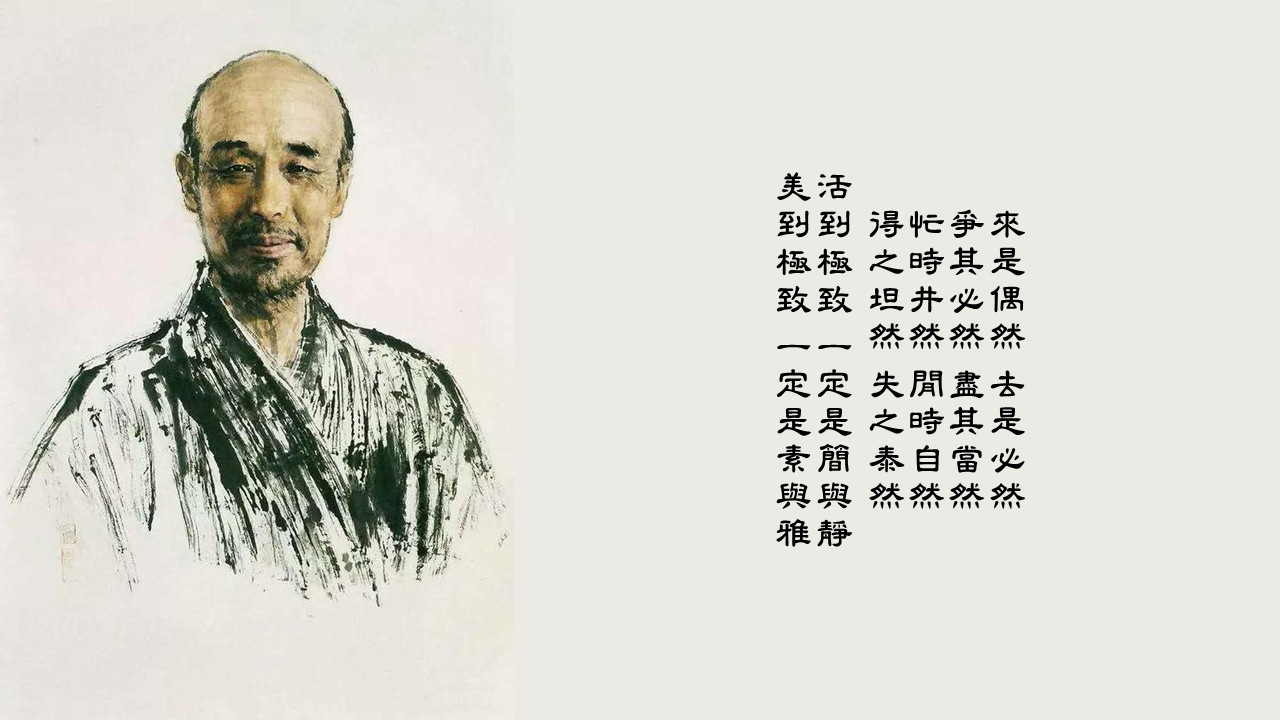 來是偶然 去是必然
爭其必然 盡其當然
忙時井然 閒時自然
得之坦然 失之泰然
活到極致一定是簡與靜
美到極致一定是素與雅